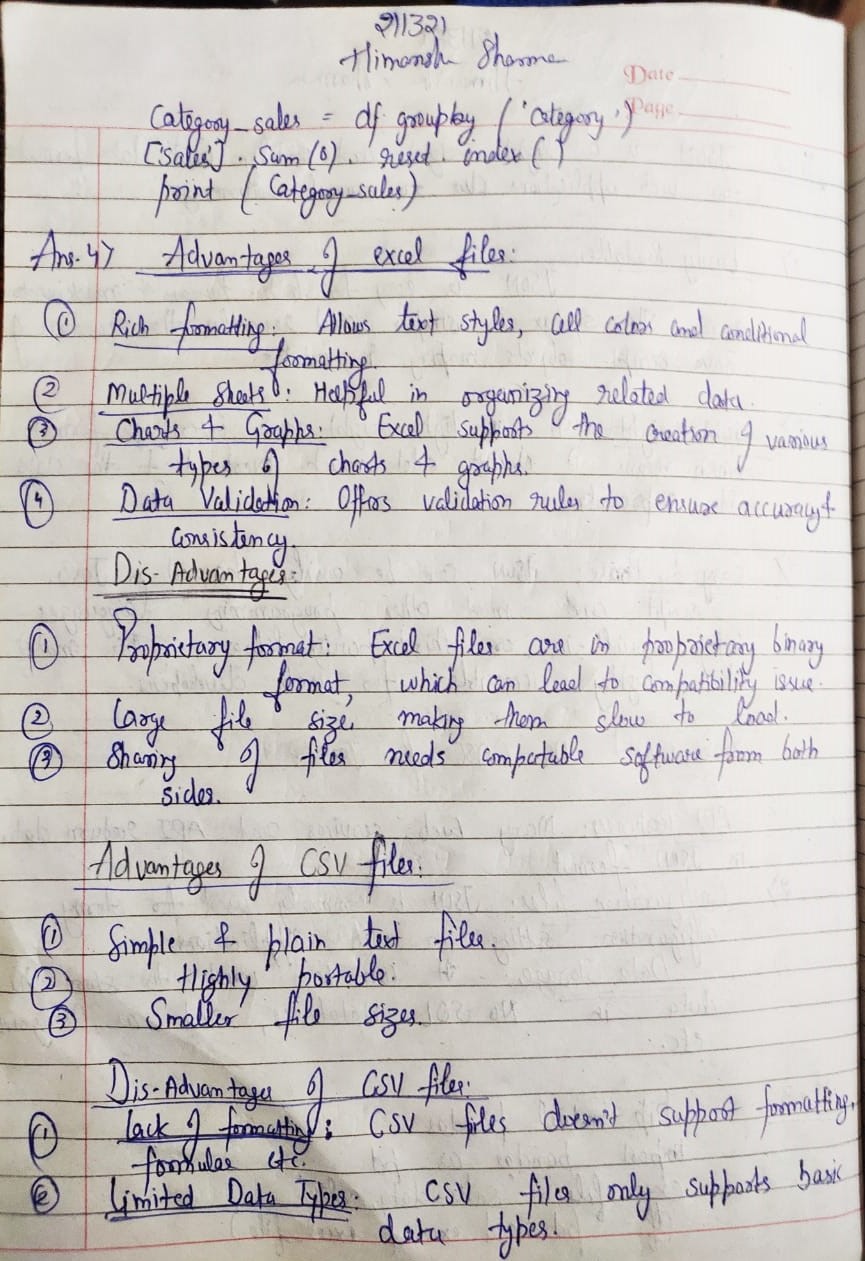 211321
Himanshu Sharma
Date
Page
Category_sales = df groupby ('Category')
['Sales'] . Sum () . reset . index ()
print (Category_sales)
Ans. 4> Advantages of excel files:
① Rich formatting: Allows text styles, cell colors and conditional
formatting.
② Multiple Sheets: Helpful in organizing related data.
③ Charts & Graphs: Excel supports the creation of various
types of charts & graphs.
④ Data Validation: Offers validation rules to ensure accuracy &
consistency.
Dis-Advantages:
① Proprietary format: Excel files are in proprietary binary
format, which can lead to compatibility issue.
② Large file size, making them slow to load.
③ Sharing of files needs compatable software from both
sides.
Advantages of CSV files:
① Simple & plain text files.
② Highly portable.
③ Smaller file sizes.
Dis-Advantages of CSV files:
① Lack of formatting: CSV files doesn't support formatting,
formulas etc.
② Limited Data Types: CSV files only supports basic
data types.